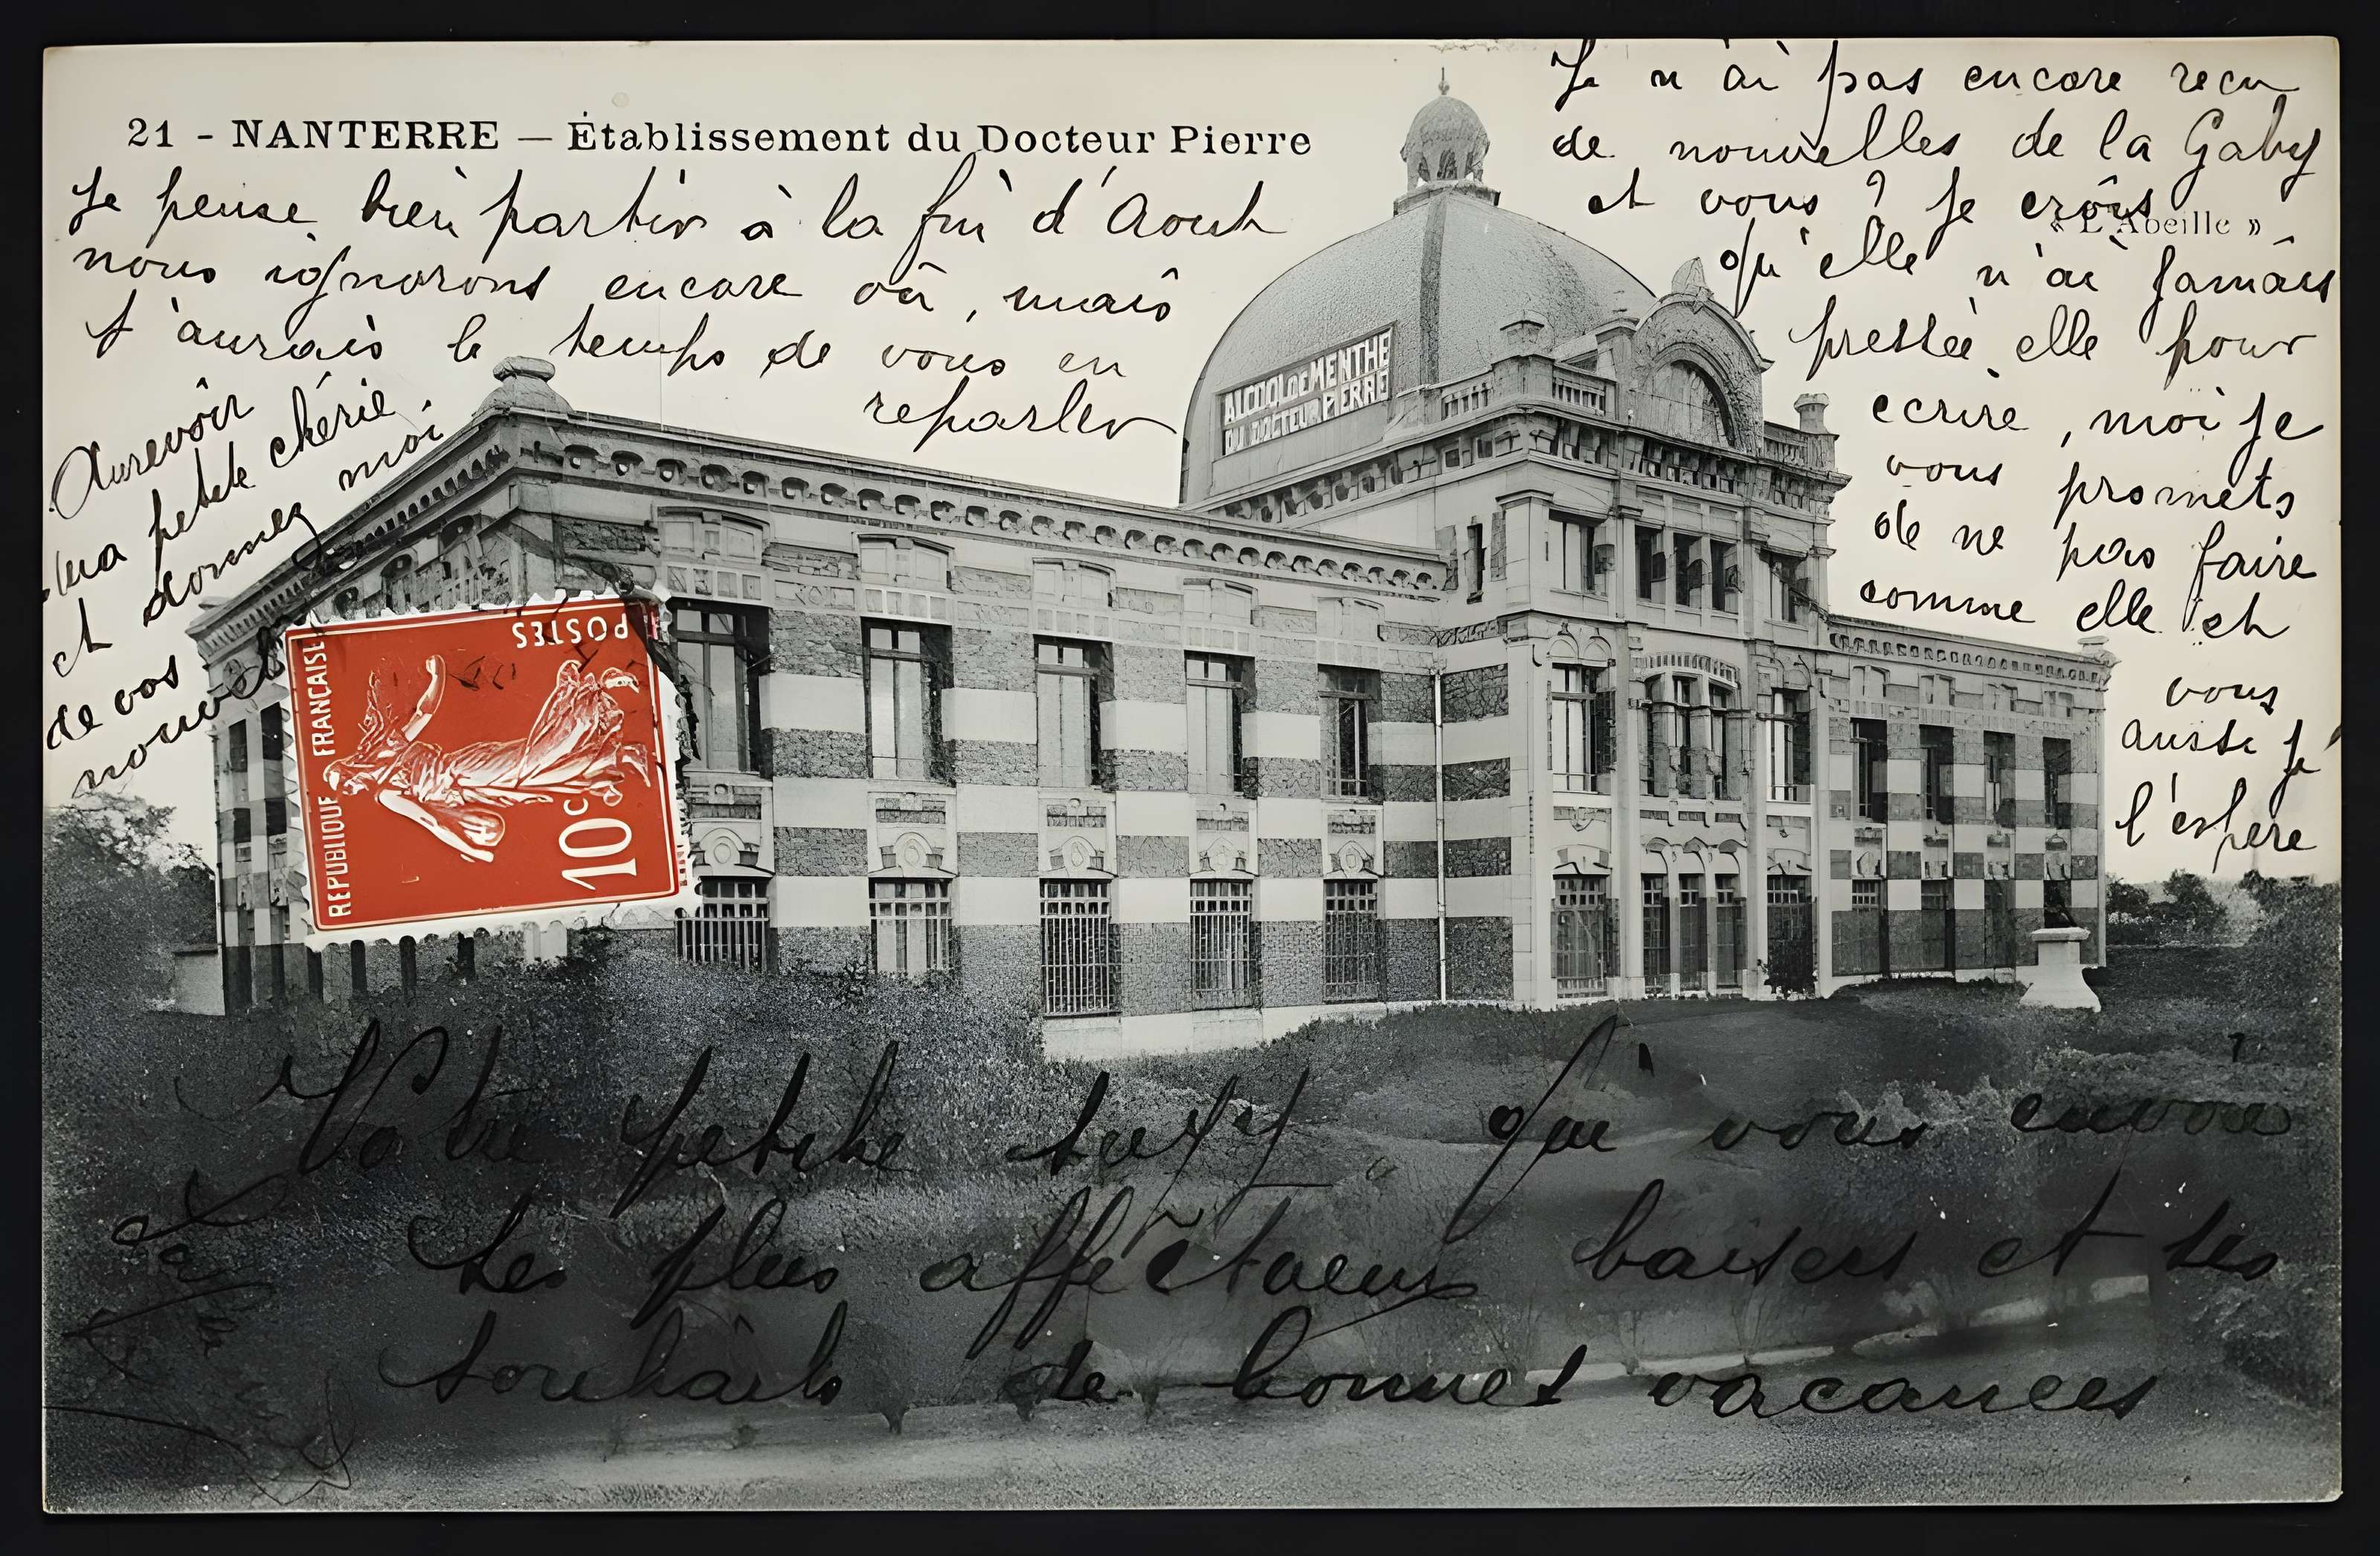 21 - NANTERRE — Établissement du Docteur Pierre
« L'Abeille »
Je pense bien partir à la fin d'Aout
nous ignorons encore où, mais
j'aurais le temps de vous en
reparler
Aurevoir
ma petite chérie
et donnez moi
de vos
Je n'ai pas encore recu
de nouvelles de la Gaby
et vous ? Je crois
qu'elle n'ai jamais
pressée elle pour
ecrire, moi je
vous promets
de ne pas faire
comme elle et
vous
aussi je
l'espere
ALCOOL DE MENTHE
DU DOCTEUR PIERRE
REPUBLIQUE FRANÇAISE
POSTES
10c
Votre petite qui vous envoie
ses plus affectueux baisers et ses
souhaits de bonnes vacances